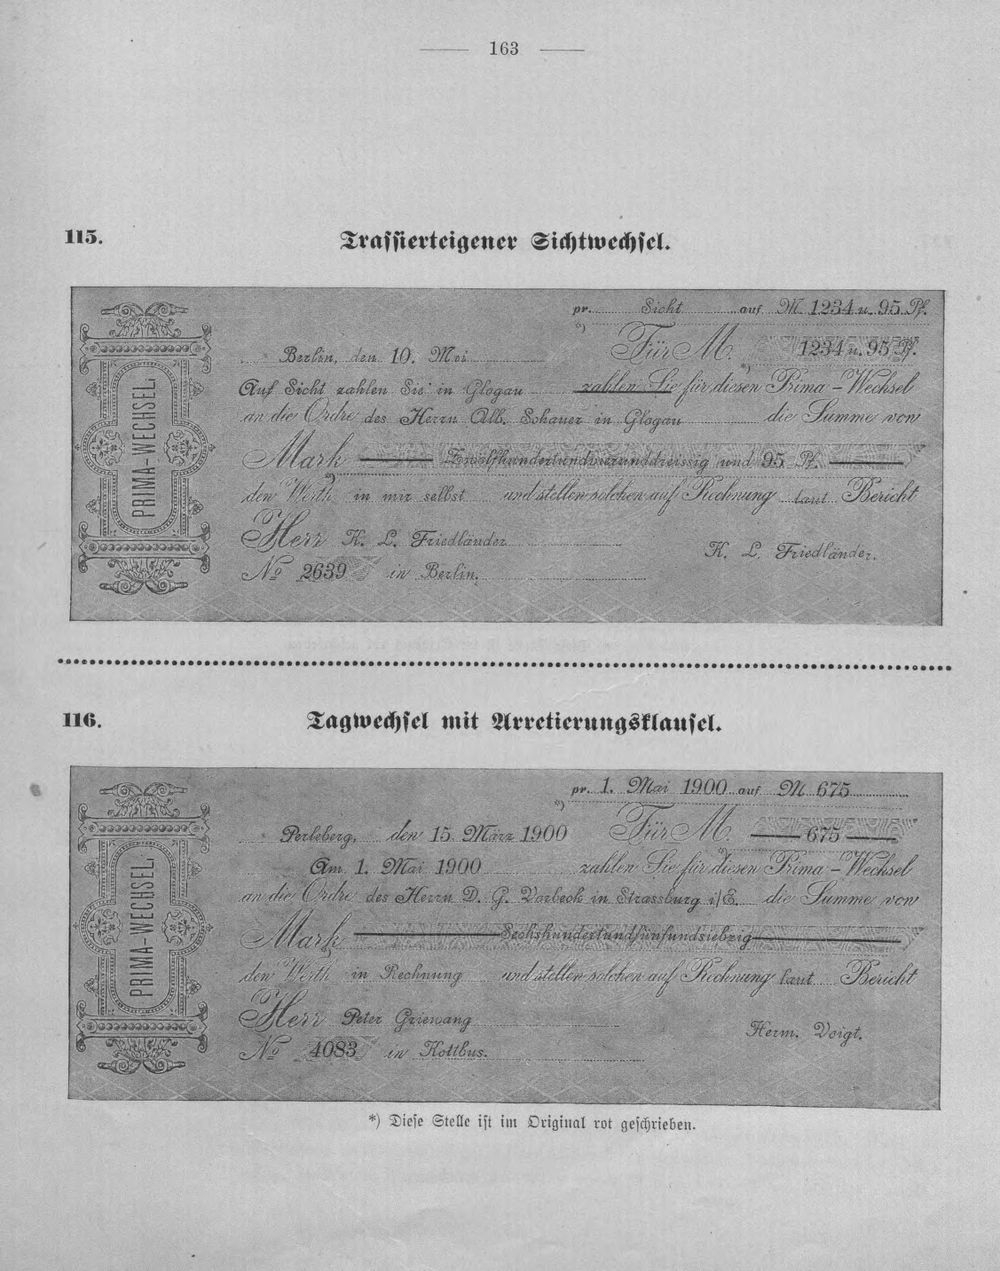 163
115. Trassierteigener Sichtwechsel.
PRIMA-WECHSEL.
pr. Sicht auf M 1234 u. 95 Pf.
*)
Berlin, den 10. Mai Für M. 1234 u. 95 Pf.
Auf Sicht zahlen Sie in Glogau zahlen Sie für diesen Prima-Wechsel
an die Ordre des Herrn Alb. Schauer in Glogau die Summe von
Mark Zwölfhundertundvierunddreissig und 95 Pf.
den Werth in mir selbst und stellen solchen auf Rechnung laut Bericht
Herr K. L. Friedländer
K. L. Friedländer.
No 2639 in Berlin.
116. Tagwechsel mit Arretierungsklausel.
PRIMA-WECHSEL.
pr. 1. Mai 1900 auf M 675
*)
Perleberg, den 15. März 1900 Für M. 675
Am 1. Mai 1900 zahlen Sie für diesen Prima-Wechsel
an die Ordre des Herrn D. G. Varbeck in Strassburg i/E. die Summe von
Mark Sechshundertundfünfundsiebzig
den Werth in Rechnung und stellen solchen auf Rechnung laut Bericht
Herr Peter Griewang
Herm. Voigt.
No 4083 in Kottbus.
*) Diese Stelle ist im Original rot geschrieben.